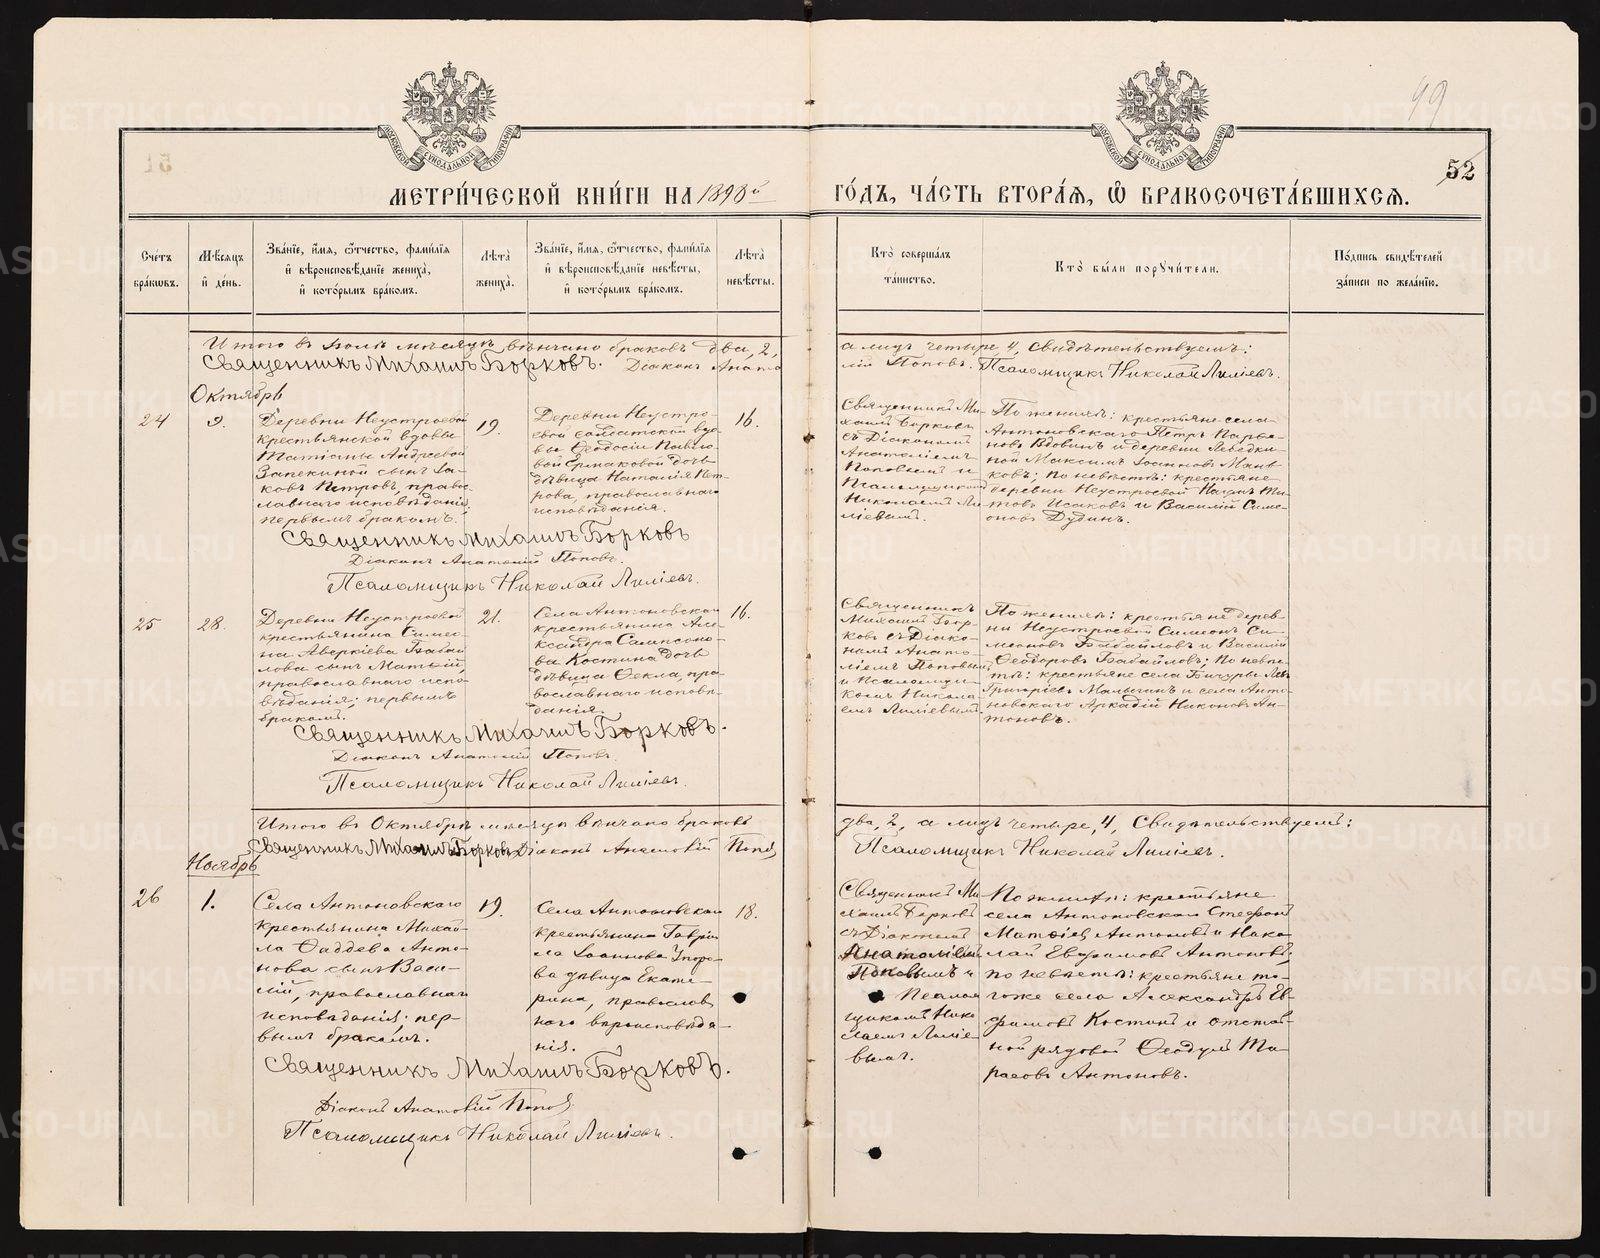 99
52
МЕТРИ́ЧЕСКОЙ КНИ́ГИ НА 1898й
ГО́ДЪ, ЧА́СТЬ ВТОРА́Я, Ѡ БРАКОСОЧЕТА́ВШИХСЯ.
Сче́тъ бра́кѡвъ.
Мѣ́сяцъ и де́нь.
Зва́нїе, и́мя, ѻ́тчество, фами́лїя и вѣроисповѣ́данїе жениха̀, и кото́рымъ бра́комъ.
Лѣ́та жениха̀.
Зва́нїе, и́мя, ѻ́тчество, фами́лїя и вѣроисповѣ́данїе невѣ́сты, и кото́рымъ бра́комъ.
Лѣ́та невѣ́сты.
Кто̀ соверша́лъ та́инство.
Кто̀ бы́ли поручи́тели.
По́дпись свидѣ́телей за́писи по жела́нїю.
Итого въ мѣсяцѣ вѣнчано браковъ два, 2,
а лицъ четыре, 4, Свидѣтельствуемъ:
Священникъ Михаилъ Борковъ. Діаконъ Анато
лій Поповъ. Псаломщикъ Николай Лиліевъ.
Октябрь
24
9.
Деревни Неустроевой
крестьянской вдовы
Татіаны Андреевой
Запекиной сынъ Іа-
ковъ Петровъ, право-
славнаго исповѣданія,
первымъ бракомъ.
19.
Деревни Неустро-
евой солдатской вдо-
вы Ѳеодосіи Павло-
вой Ермаковой дочь
дѣвица Наталія Пет-
рова, православнаго
исповѣданія.
16.
Священникъ Ми-
хаилъ Борковъ
съ Діакономъ
Анатоліемъ
Поповымъ и
Псаломщикомъ
Николаемъ Ли-
ліевымъ.
По женихѣ: крестьяне села
Антоновскаго Петръ
Вдовинъ и деревни Лебедки-
ной Максимъ Іоанновъ
по невѣстѣ: крестьяне
деревни Неустроевой Ти-
товъ Исаковъ и Василій Симе-
оновъ Дудинъ.
Священникъ Михаилъ Борковъ
Діаконъ Анатолій Поповъ.
Псаломщикъ Николай Лиліевъ.
25
28.
Деревни Неустроевой
крестьянина Симео-
на Аверкіева Бабай-
лова сынъ Матѳій
православнаго испо-
вѣданія; первымъ
бракомъ.
21.
Села Антоновскаго
крестьянина Але-
ксандра Сампсоно-
ва Костина дочь
дѣвица Ѳекла, пра-
вославнаго исповѣ-
данія.
16.
Священникъ
Михаилъ Бор-
ковъ съ Діако-
номъ Анато-
ліемъ Поповымъ
и Псаломщи-
комъ Никола-
емъ Лиліевымъ.
По женихѣ: крестьяне дерев-
ни Неустроевой Симеонъ Си-
меоновъ Бабайловъ и Василій
Ѳеодоровъ Бабайловъ; по невѣс-
тѣ: крестьяне села Бичуры Левъ
Григоріевъ Малыгинъ и села Анто-
новскаго Аркадій Никоновъ Ан-
тоновъ.
Священникъ Михаилъ Борковъ.
Діаконъ Анатолій Поповъ.
Псаломщикъ Николай Лиліевъ.
Итого въ Октябрѣ мѣсяцѣ вѣнчано браковъ
два, 2, а лицъ четыре, 4, Свидѣтельствуемъ:
Священникъ Михаилъ Борковъ Діаконъ Анатолій Поповъ
Псаломщикъ Николай Лиліевъ.
Ноябрь
26
1.
Села Антоновскаго
крестьянина Михаи-
ла Ѳаддѣева Анто-
нова сынъ Васи-
лій, православнаго
исповѣданія; пер-
вымъ бракомъ.
19.
Села Антоновскаго
крестьянина Гаврі-
ла Іоаннова
дѣвица Екате-
рина, православ-
наго вѣроисповѣда-
нія.
18.
Священникъ Ми-
хаилъ Борковъ
съ Діакономъ
Анатоліемъ
Поповымъ и
Псалом-
щикомъ Нико-
лаемъ Лиліе-
вымъ.
По женихѣ: крестьяне
села Антоновскаго Стефанъ
Матѳіевъ Антоновъ и Нико-
лай Евфимовъ Антоновъ;
по невѣстѣ: крестьяне то-
гоже села Александръ Ев-
фимовъ Костинъ и отстав-
ной рядовой Ѳеодулъ Та-
расовъ Антоновъ.
Священникъ Михаилъ Борковъ.
Діаконъ Анатолій Поповъ
Псаломщикъ Николай Лиліевъ.
METRIKI.GASO-URAL.RU